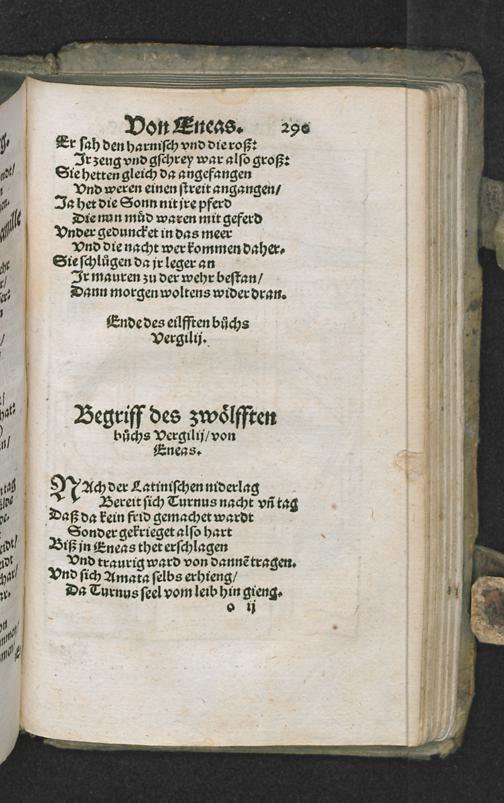 Von Eneas. 290
Er sah den harnisch vnd die roß:
Ir zeug vnd gschrey war also groß:
Sie hetten gleich da angefangen
Vnd weren einen streit angangen/
Ja het die Sonn nit jre pferd
Die nun müd waren mit geferd
Vnder geduncket in das meer
Vnd die nacht wer kommen daher.
Sie schlügen da jr leger an
Ir mauren zu der wehr bestan/
Dann morgen woltens wider dran.
Ende des eilfften bůchs
Vergilij.
Begriff des zwölfften
bůchs Vergilij/von
Eneas.
NAch der Latinischen niderlag
Bereit sich Turnus nacht vñ tag
Daß da kein frid gemachet wardt
Sonder gekrieget also hart
Biß jn Eneas thet erschlagen
Vnd traurig ward von dannẽ tragen.
Vnd sich Amata selbs erhieng/
Da Turnus seel vom leib hin gieng.
o ij